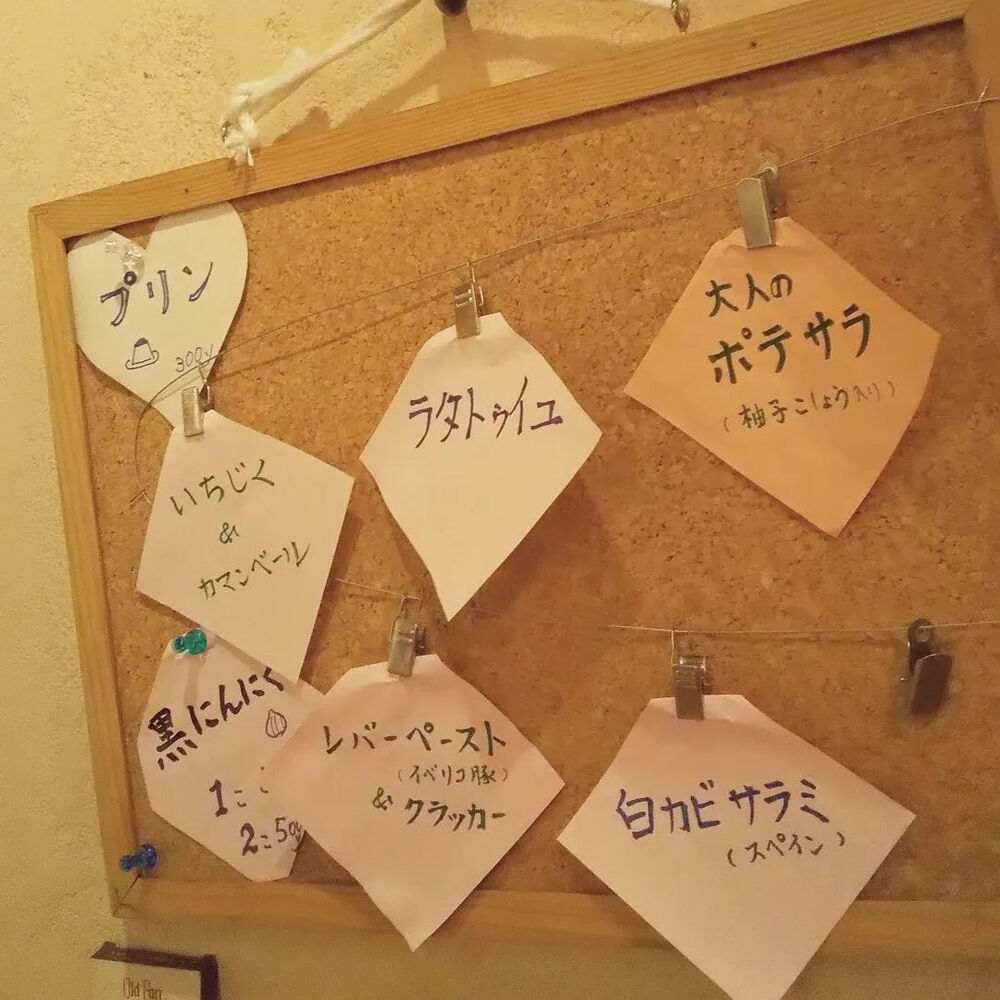 プリン
300y
いちじく
&
カマンベール
ラタトゥイユ
大人の
ポテサラ
(柚子こしょう入り)
黒にんにく
1こ
2こ50y
レバーペースト
(イベリコ豚)
& クラッカー
白カビサラミ
(スペイン)
Old Parr